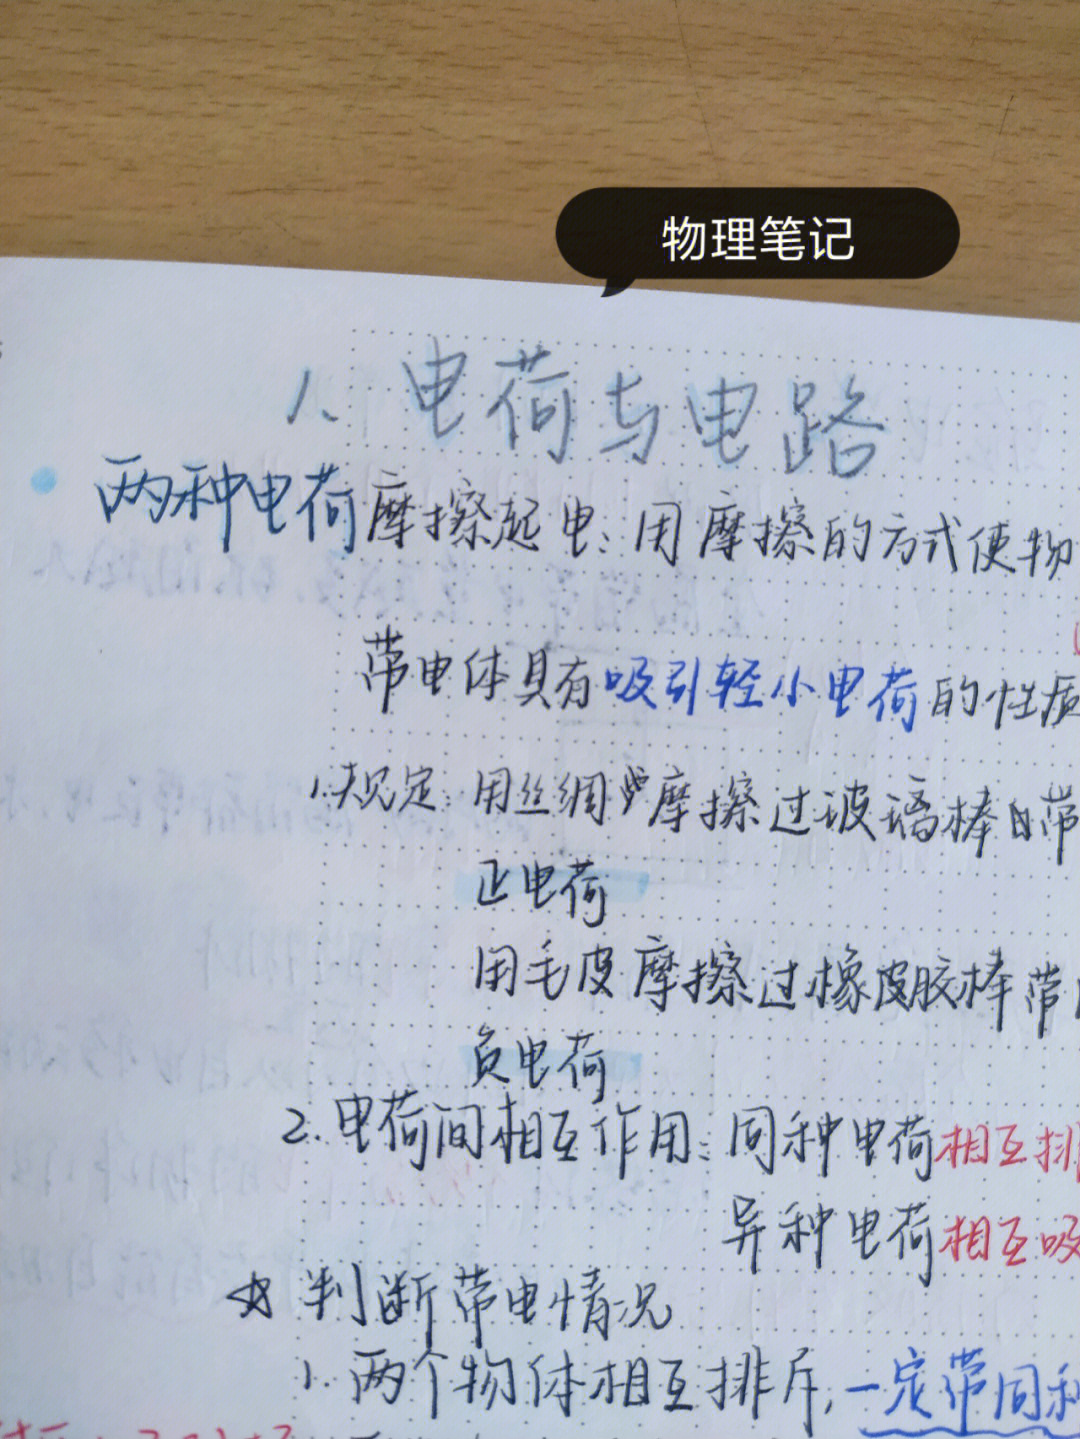 物理笔记
1、电荷与电路
两种电荷摩擦起电：用摩擦的方式使物
带电体具有吸引轻小电荷的性质
1.规定：用丝绸摩擦过玻璃棒的带
正电荷
用毛皮摩擦过橡皮胶棒带
负电荷
2.电荷间相互作用：同种电荷相互排
异种电荷相互吸
☆判断带电情况
1.两个物体相互排斥,一定带同种